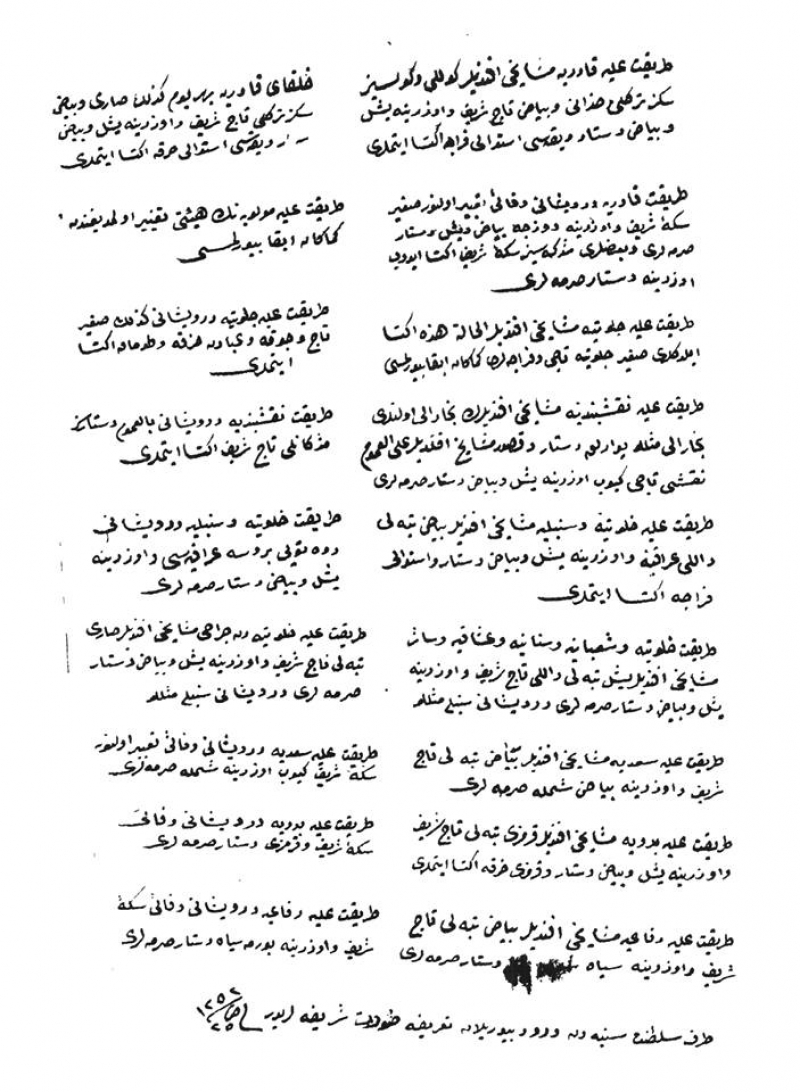 طريقت عليه قادريه مشايخى افنديلر كوللى وكولسيز
سكز تركلى خذانى وبياض تاج شريف واوزرينه يشل
وبياض دستار ويقه‌سى استوالى فراجه اكتسا ايتمه‌لرى
خلفاى قادريه كذلك صارى وبياض
سكز تركلى تاج شريف واوزرينه يشل وبياض
ويقه‌سى استوالى خرقه اكتسا ايتمه‌لرى
طريقت قادريه درويشانى وفائى تعبير اولنور صغير
سكهٔ شريف واوزرينه دوزجه بياض ويشل دستار
صرمه‌لرى وبعضلرى سكهٔ شريف اكتسا ايدوب
اوزرينه دستار صرمه‌لرى
طريقت عليه مولويه‌نك هيئتى تغيير اولمديغندن
كماكان ابقا بيورلمسى
طريقت عليه جلوتيه مشايخى افنديلر الحالة هذه اكتسا
ايلدكلرى صغير جلوتيه تاجى وفراجه‌لرى كماكان ابقا بيورلمسى
طريقت عليه جلوتيه درويشانى كذلك صغير
تاج وجوقه وعبادن خرقه اكتسا
ايتمه‌لرى
طريقت عليه نقشبنديه مشايخى افنديلرك بخارالى اولنلرى
بخارالى مثللو دستار وقصور مشايخ افنديلر على العموم
نقشى تاجى كيوب اوزرينه يشل وبياض دستار صرمه‌لرى
طريقت نقشبنديه درويشانى بالعموم دستارسز
تاج شريف اكتسا ايتمه‌لرى
طريقت عليه خلوتيه وسنبليه مشايخى افنديلر بياض تپه‌لى
داللى عراقيه واوزرينه يشل وبياض دستار واستوالى
فراجه اكتسا ايتمه‌لرى
طريقت خلوتيه وسنبليه درويشانى
دوه تويى بروسه عراقيه‌سى واوزرينه
يشل وبياض دستار صرمه‌لرى
طريقت خلوتيه وشعبانيه وسنانيه وعشاقيه وسائر
مشايخى افنديلر يشل تپه‌لى داللى تاج شريف واوزرينه
يشل وبياض دستار صرمه‌لرى درويشانى سنبلى مثللو
طريقت عليه خلوتيه‌دن جراحى مشايخى افنديلر صارى
تپه‌لى تاج شريف واوزرينه يشل وبياض دستار
صرمه‌لرى درويشانى سنبلى مثللو
طريقت عليه سعديه مشايخى افنديلر بياض تپه‌لى تاج
شريف واوزرينه بياض شمله صرمه‌لرى
طريقت عليه سعديه درويشانى وفائى تعبير اولنور
سكهٔ شريف كيوب اوزرينه شمله صرمه‌لرى
طريقت عليه بدويه مشايخى افنديلر قرمزى تپه‌لى تاج شريف
واوزرينه يشل وبياض دستار وقرمزى خرقه اكتسا ايتمه‌لرى
طريقت عليه بدويه درويشانى وفائى
سكهٔ شريف وقرمزى دستار صرمه‌لرى
طريقت عليه رفاعيه مشايخى افنديلر بياض تپه‌لى تاج
شريف واوزرينه سياه دستار صرمه‌لرى
طريقت عليه رفاعيه درويشانى وفائى سكهٔ
شريف واوزرينه بورمه سياه دستار صرمه‌لرى
طرف سلطنت سنيه‌دن ورود بيوريلان تعريفه شريفه
١٢٥٢